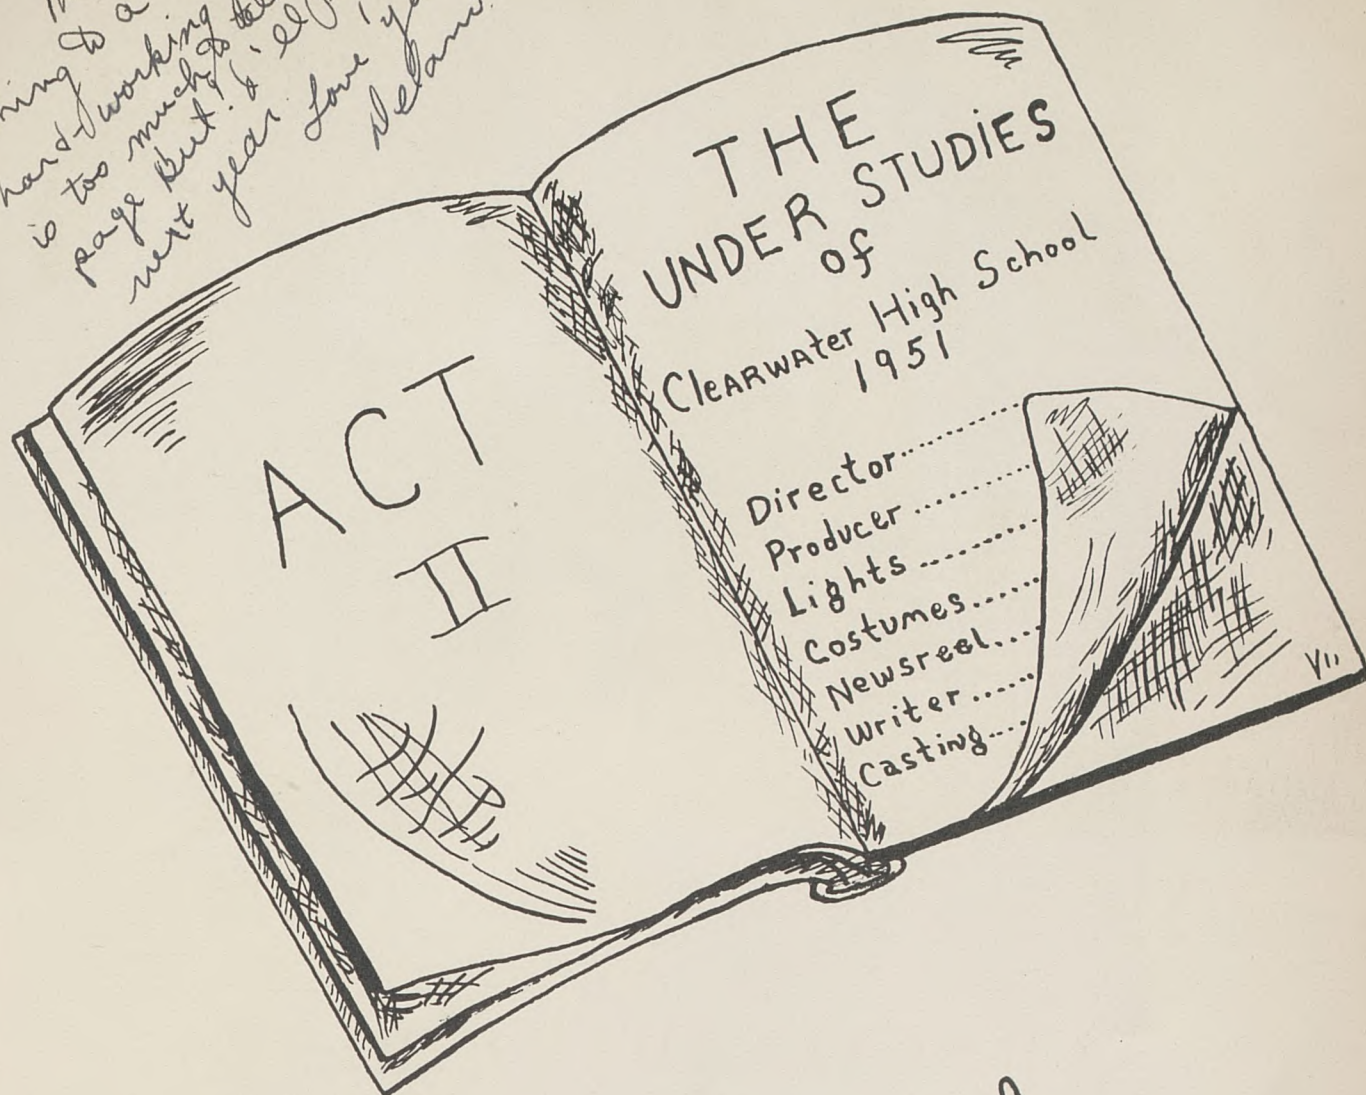 ning to a
hard-working
is too much to tell
page but I'll
next year. Love ya
ACT
II
THE
UNDER STUDiES
of
ClEARWAter High School
1951
Director
Producer
Lights
Costumes
Newsreel
Writer
Casting